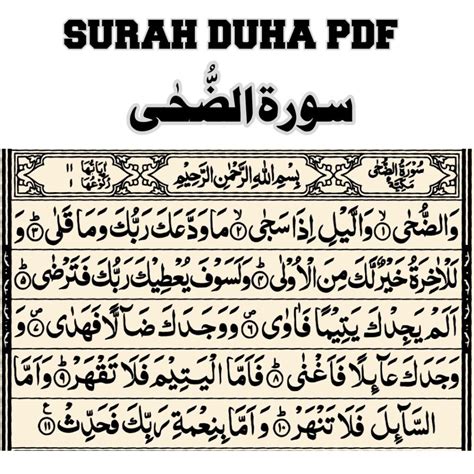 SURAH DUHA PDF
سورة الضُّحٰى
سُوْرَةُ الضُّحٰى مَكِّيَّةٌ بِسْمِ اللهِ الرَّحْمٰنِ الرَّحِيْمِ اٰيَاتُهَا ١١ رُكُوْعُهَا ١
وَالضُّحٰى ۝١ وَالَّيْلِ اِذَا سَجٰى ۝٢ مَا وَدَّعَكَ رَبُّكَ وَمَا قَلٰى ۝٣ وَ
لَلْاٰخِرَةُ خَيْرٌ لَّكَ مِنَ الْاُوْلٰى ۝٤ وَلَسَوْفَ يُعْطِيْكَ رَبُّكَ فَتَرْضٰى ۝٥
اَلَمْ يَجِدْكَ يَتِيْمًا فَاٰوٰى ۝٦ وَوَجَدَكَ ضَآلًّا فَهَدٰى ۝٧ وَ
وَجَدَكَ عَآئِلًا فَاَغْنٰى ۝٨ فَاَمَّا الْيَتِيْمَ فَلَا تَقْهَرْ ۝٩ وَاَمَّا
السَّآئِلَ فَلَا تَنْهَرْ ۝١٠ وَاَمَّا بِنِعْمَةِ رَبِّكَ فَحَدِّثْ ۝١١ ع